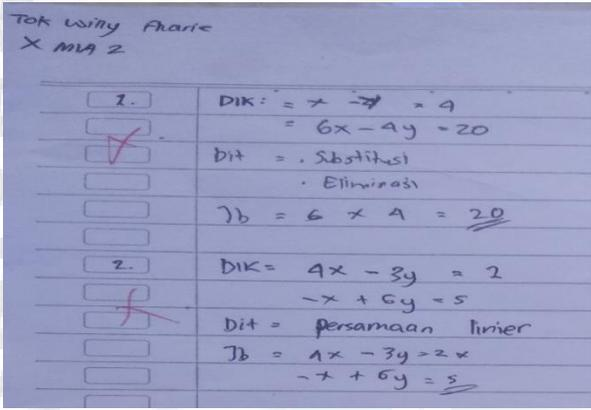 Tok Winy Fharie
X MIA 2
1. DIK : = x - y = 4
= 6x - 4y = 20
Dit = . Substitusi
. Eliminasi
Jb = 6 x 4 = 20
2. DIK = 4x - 3y = 2
-x + 6y = 5
Dit = persamaan linier
Jb = 4x - 3y = 2 x
-x + 6y = 5